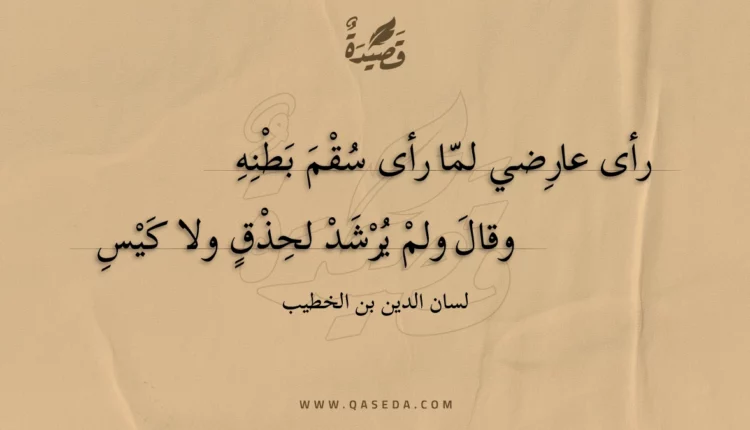 قَصِيدَةٌ
رأى عارِضي لمّا رأى سُقْمَ بَطْنِهِ
وقالَ ولمْ يُرْشَدْ لحِذْقٍ ولا كَيْسِ
لسان الدين بن الخطيب
WWW.QASEDA.COM